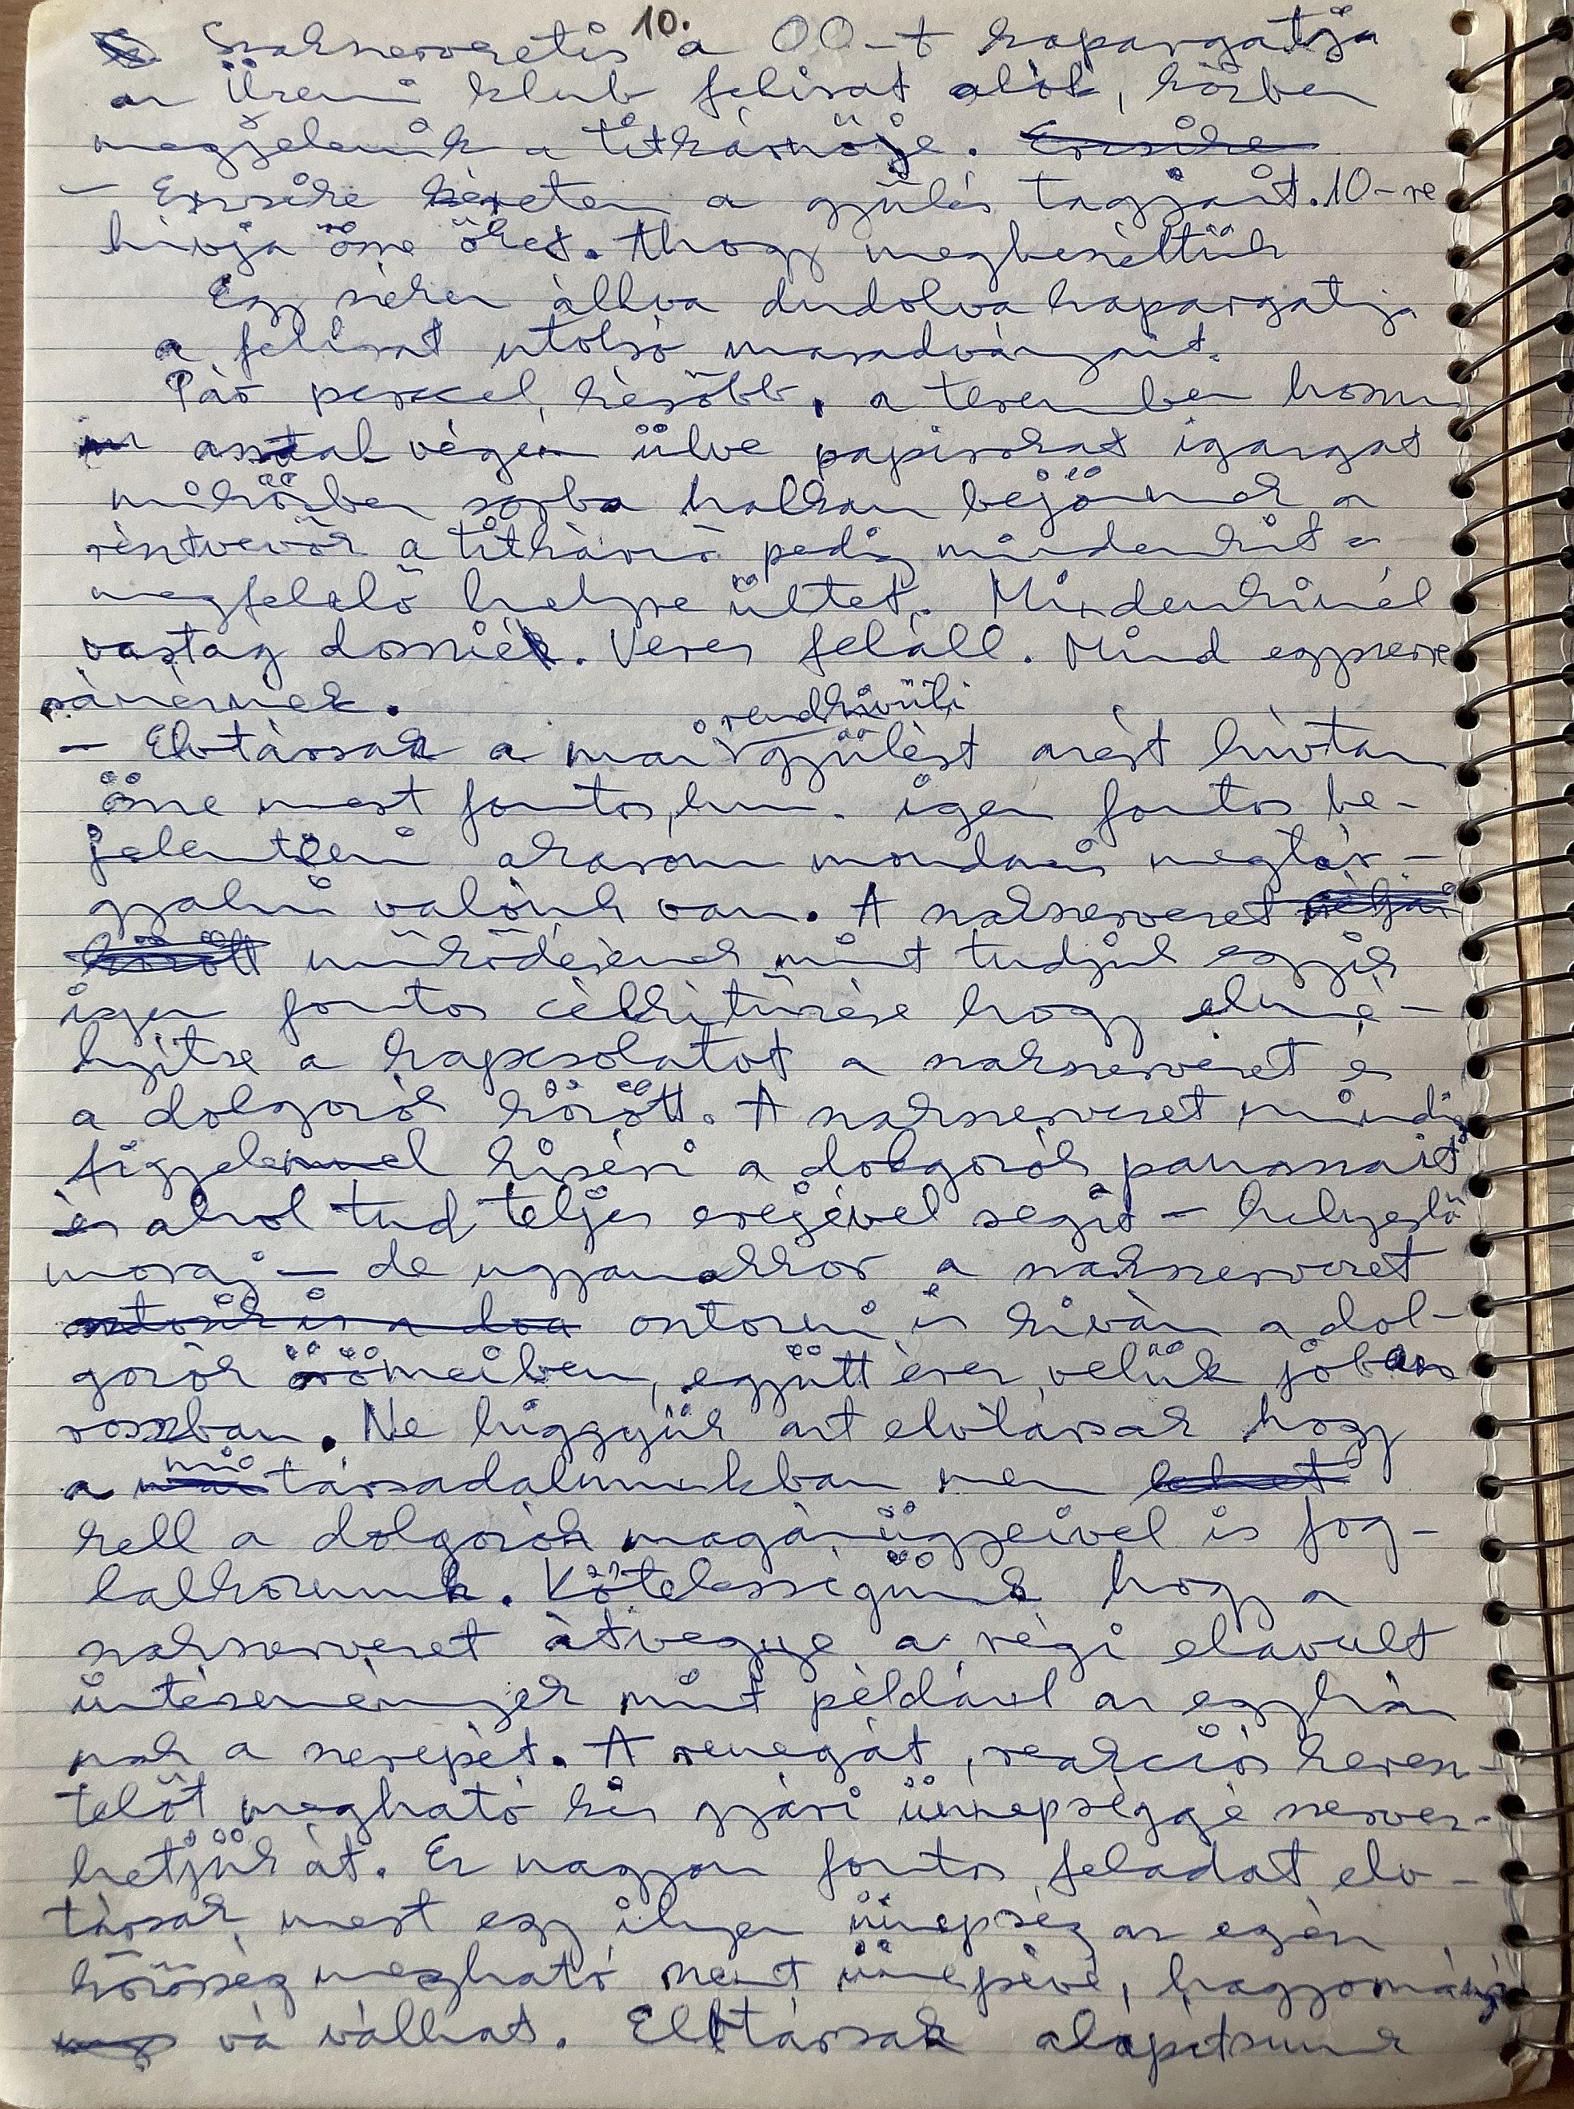 10.
Szakszervezetis a 00-t kapargatja
az Üzemi klub felirat alól, közben
megjelenik a titkárnője. Erzsike
- Erzsike kéretem a gyűlés tagjait. 10-re
hívja össze őket. Ahogy megbeszéltük
Egy széken állva dudolva kapargatja
a felirat utolsó maradványait.
Pár perccel később, a teremben hosszu
asztal végén ülve papirokat igazgat
miközben sorba halkan bejönnek a
résztvevők a titkárnő pedig mindenkit a
megfelelő helyre ültet. Mindenkinél
vastag dosszié. Veres feláll. Mind egyszerre
ránéznek.
rendkivüli
- Elvtársak a mai gyülést azért hivtam
össze mert fontos, hm. igen fontos be-
jelenteni akarom mondani megtár-
gyalni valónk van. A szakszervezet
között müködésének mint tudjuk egyik
igen fontos célkitűzése hogy elmé-
lyitse a kapcsolatot a szakszervezet és
a dolgozók között. A szakszervezet mindig
figyelemmel kiséri a dolgozók panaszait
és ahol tud teljes erejével segit - helyeslő
moraj - de ugyanakkor a szakszervezet
osztozni is kiván a dol-
gozók örömeiben, együtt érez velük jóban
rosszban. Ne higgyük azt elvtársak hogy
mi
a társadalmunkban nem lehet
kell a dolgozók magánügyeivel is fog-
lalkoznunk. Kötelességünk hogy a
szakszervezet átvegye a régi elavult
intézmények mint például az egyház-
nak a szerepét. A renegát, reakciós keresz-
telőt megható kis gyári ünnepséggé szervez-
hetjük át. Ez nagyon fontos feladat elv-
társak, mert egy ilyen ünnepség az egész
közösség megható szent ünnepévé, hagyomány
vá válhat. Elvtársak alapitsunk